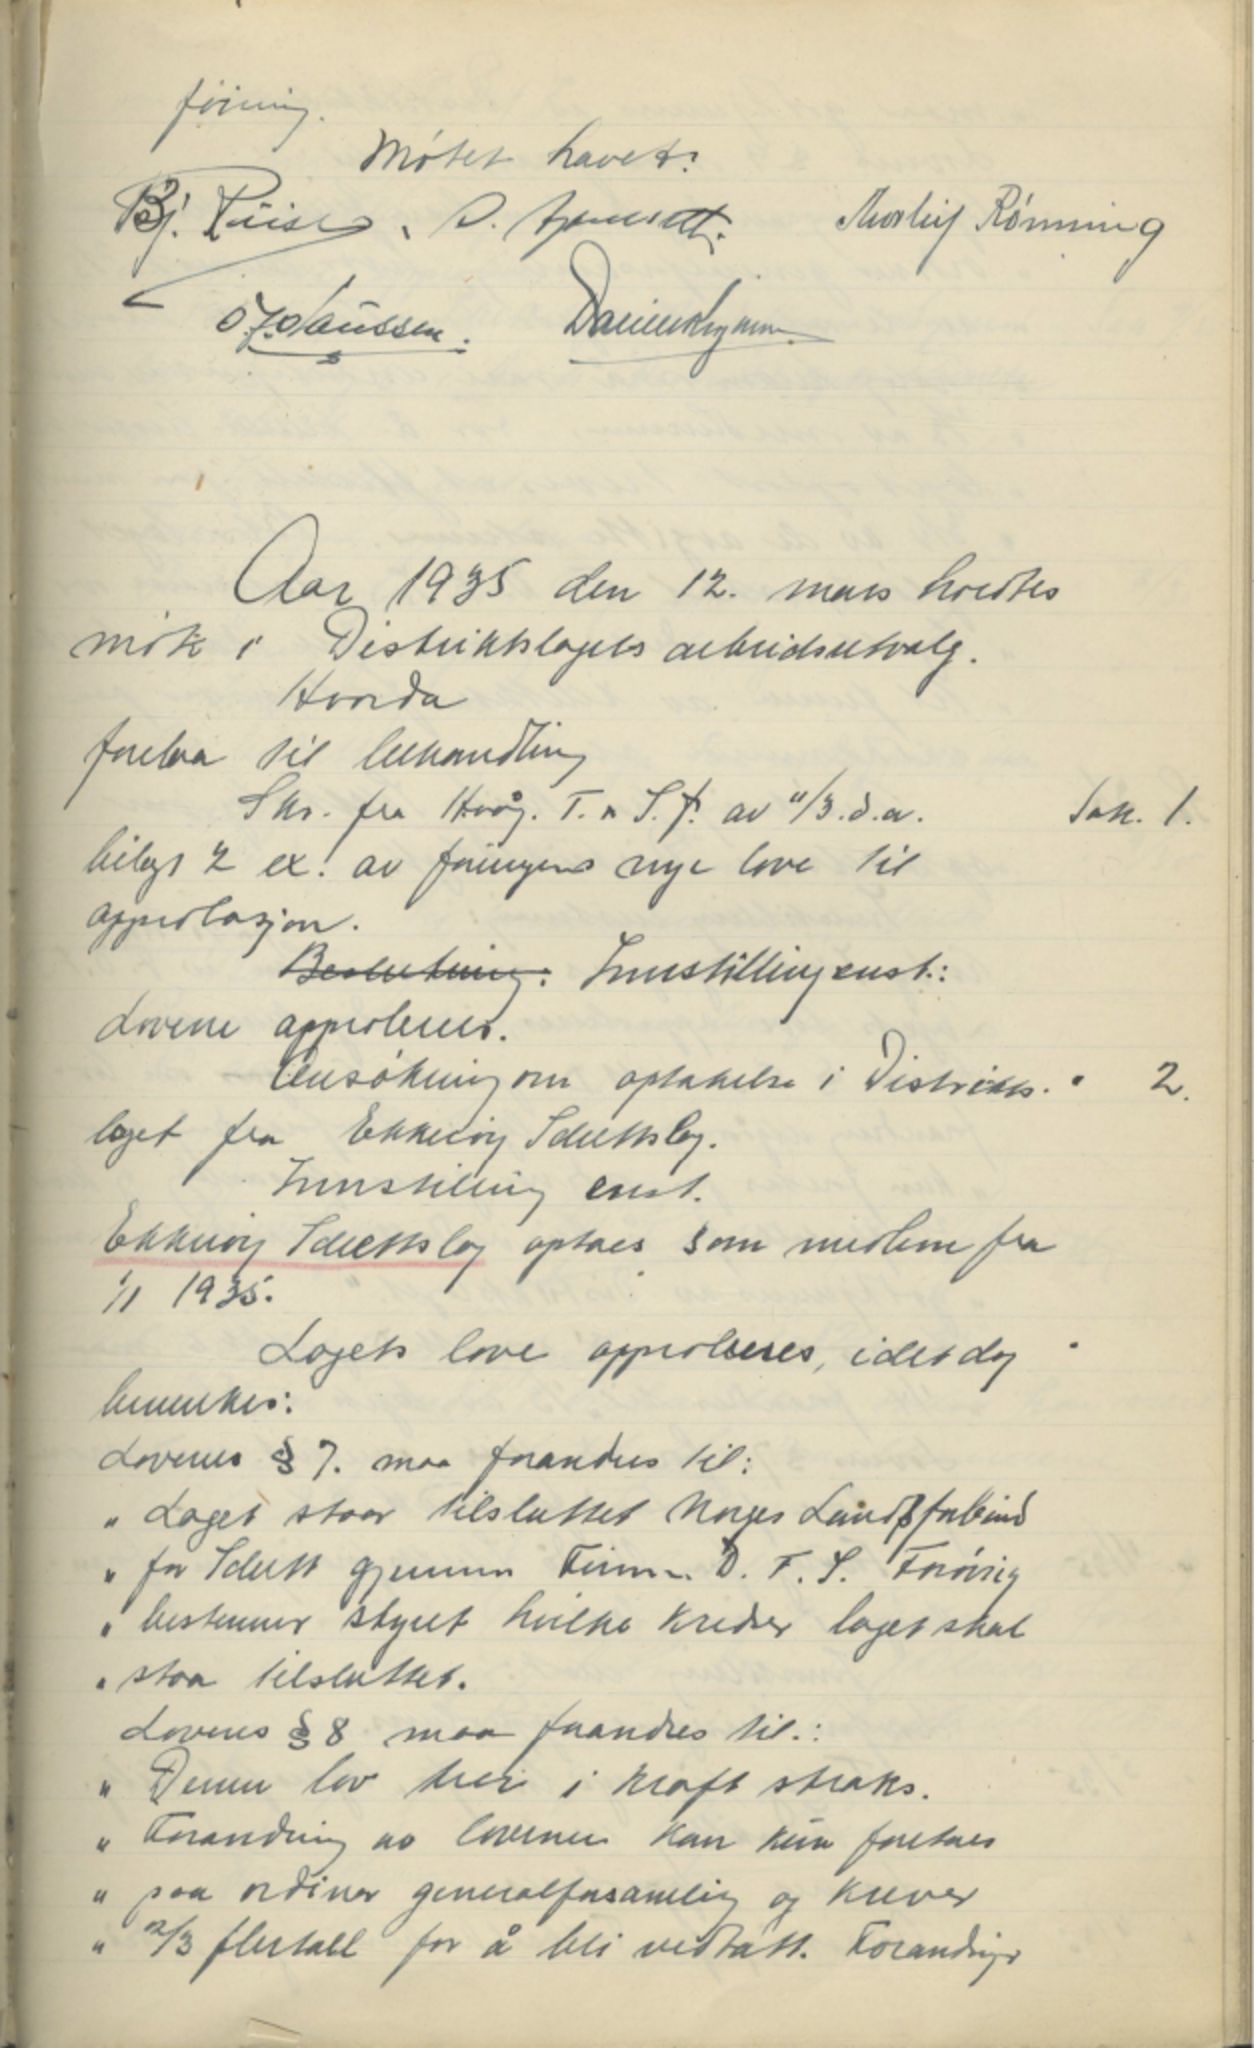 föining.
Møtet havet:
Bj. D. Thorleif Rønning
O. J. Claussen.
Aar 1935 den 12. mars holdtes
møte i Distriktslagets arbeidsutvalg.
Hvorda
forelaa til behandling
Skr. fra T. & I.f. av 11/3.d.a. Sak. 1.
bilagt 2 ex. av föningens nye love til
approbasjon.
Beslutning: Innstilling enst.:
Lovene approberes.
Ansökning om optakelse i Distrikts. " 2.
laget fra Ekkeröy Idrettslag.
Innstilling enst.
Ekkeröy Idrettslag optaes som medlem fra
1/1 1935.
Lagets love approberes, idet dog
bemerkes:
Lovenes § 7. maa forandres til:
" Laget staar tilsluttet Norges Landsforbund
" for Idrett gjennem Finnm. D. F. I. Forövrig
" bestemmer styret hvilke kredser laget skal
" staa tilsluttet.
Lovenes § 8 maa forandres til.:
" Denne lov trer i kraft straks.
" Forandring av lovene kan kun foretaes
" paa ordinær generalforsamling og krever
" 2/3 flertall for å bli vedtatt. Forandringer